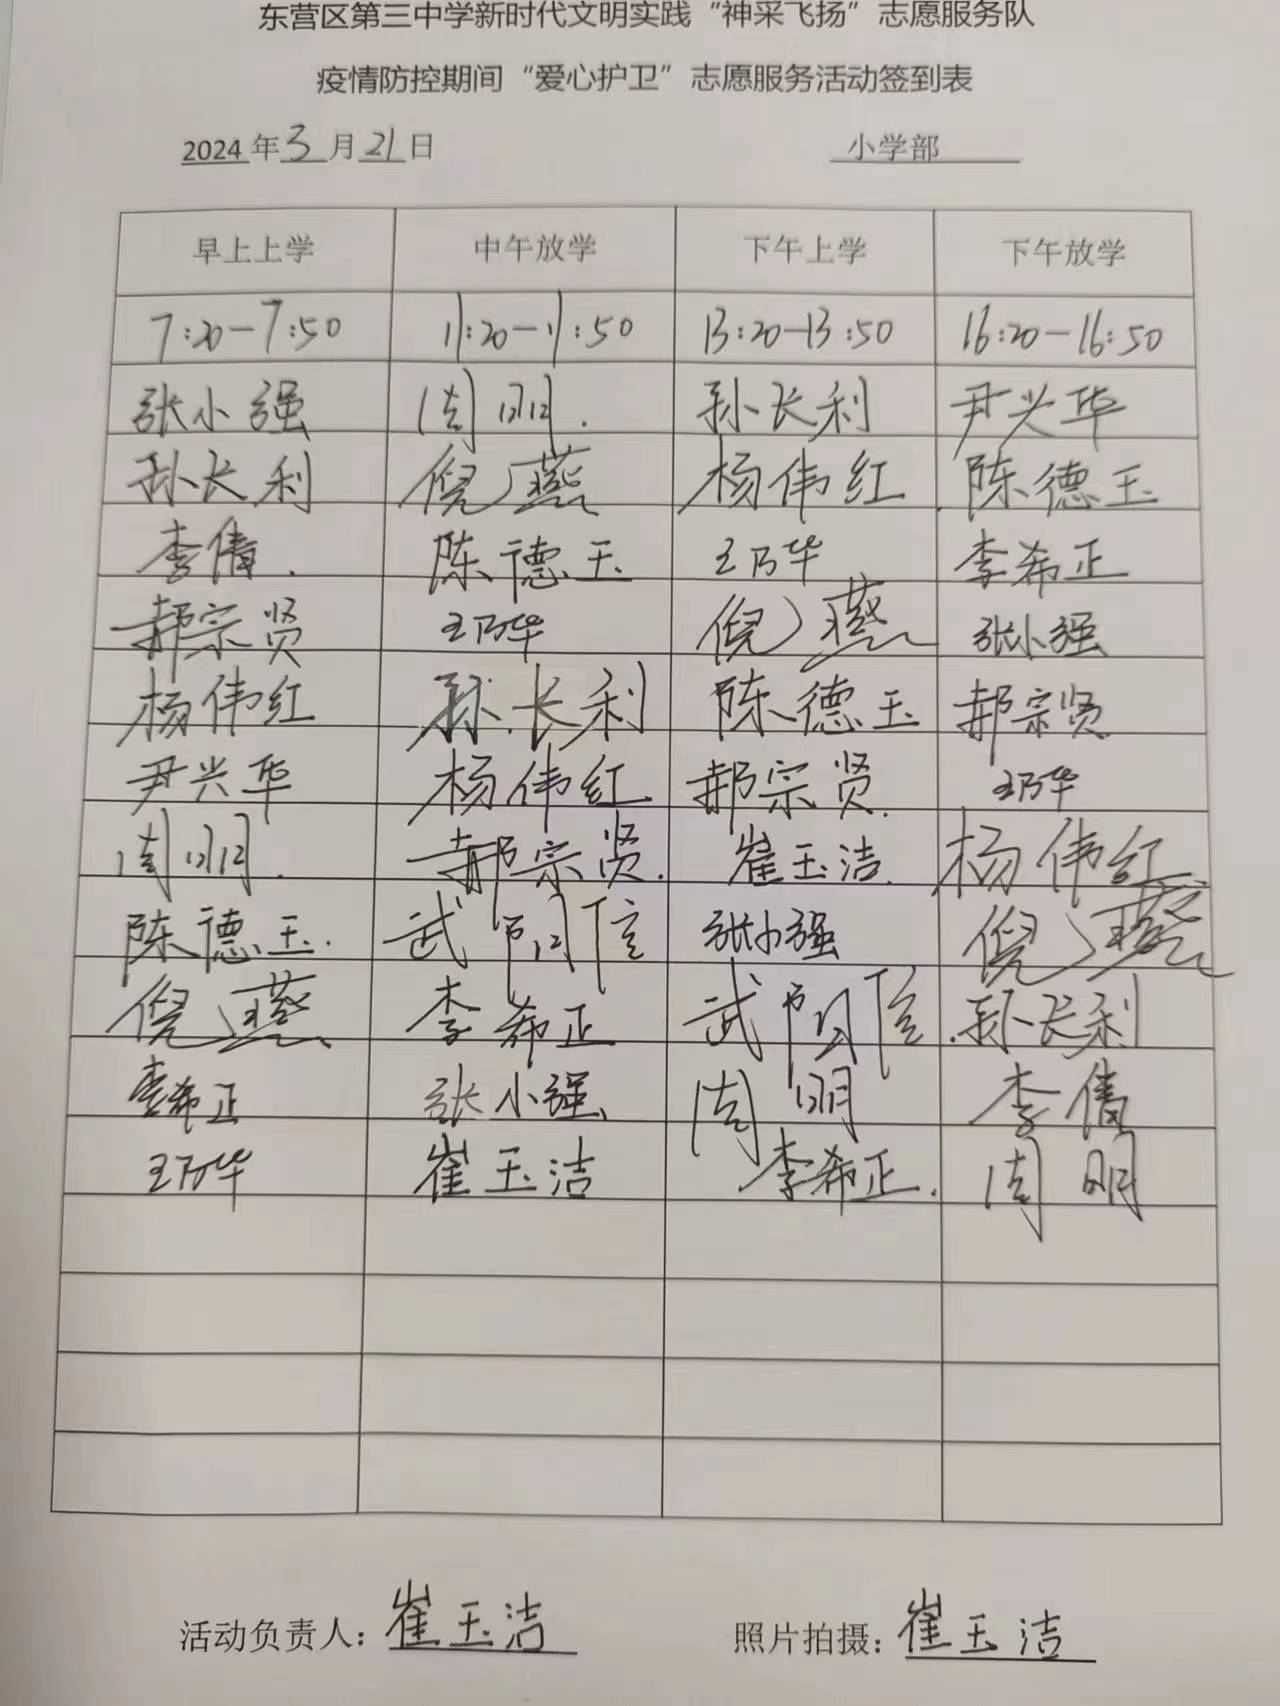 东营区第三中学新时代文明实践“神采飞扬”志愿服务队
疫情防控期间“爱心护卫”志愿服务活动签到表
2024年3月21日 小学部
早上上学 中午放学 下午上学 下午放学
7:20-7:50 11:20-11:50 13:20-13:50 16:20-16:50
张小强 周明 孙长利 尹兴华
孙长利 倪燕 杨伟红 陈德玉
李倩 陈德玉 王乃华 李希正
郝宗贤 王乃华 倪燕 张小强
杨伟红 孙长利 陈德玉 郝宗贤
尹兴华 杨伟红 郝宗贤 王乃华
周明 郝宗贤 崔玉洁 杨伟红
陈德玉 武 张小强 倪燕
倪燕 李希正 武 孙长利
李希正 张小强 周明 李倩
王乃华 崔玉洁 李希正 周明
活动负责人：崔玉洁 照片拍摄：崔玉洁